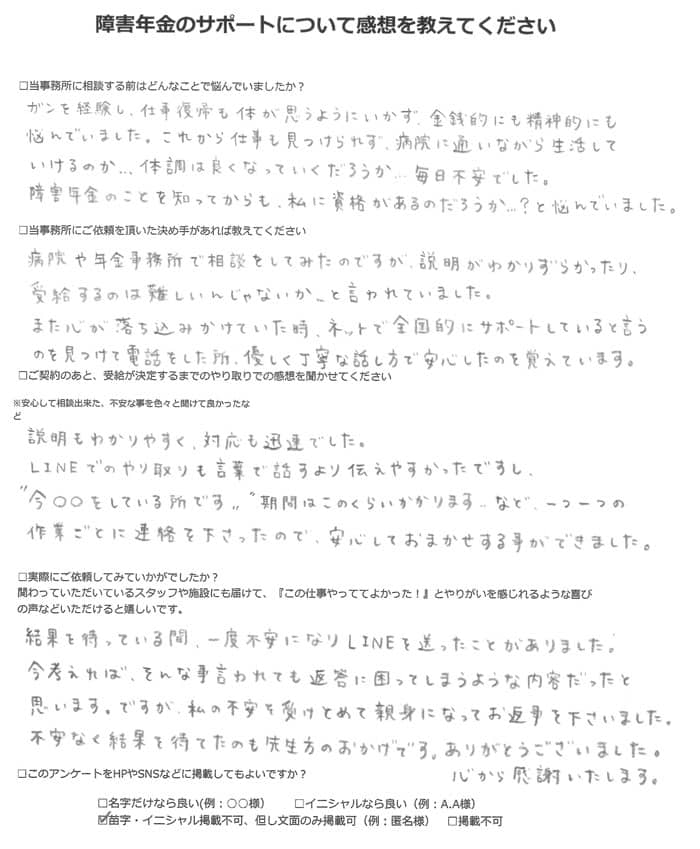 障害年金のサポートについて感想を教えてください
□当事務所に相談する前はどんなことで悩んでいましたか？
ガンを経験し、仕事復帰も体が思うようにいかず、金銭的にも精神的にも
悩んでいました。これから仕事も見つけられず、病院に通いながら生活して
いけるのか…、体調は良くなっていくだろうか…毎日不安でした。
障害年金のことを知ってからも、私に資格があるのだろうか…？と悩んでいました。
□当事務所にご依頼を頂いた決め手があれば教えてください
病院や年金事務所で相談をしてみたのですが、説明がわかりずらかったり、
受給するのは難しいんじゃないか…と言われていました。
また心が落ち込みかけていた時、ネットで全国的にサポートしていると言う
のを見つけて電話をした所、優しく丁寧な話し方で安心したのを覚えています。
□ご契約のあと、受給が決定するまでのやり取りでの感想を聞かせてください
※安心して相談出来た、不安な事を色々と聞けて良かったな
ど
説明もわかりやすく、対応も迅速でした。
LINEでのやり取りも言葉で話すより伝えやすかったですし、
"今〇〇をしている所です〃 "期間はこのくらいかかります‥など、一つ一つの
作業ごとに連絡を下さったので、安心しておまかせする事ができました。
□実際にご依頼してみていかがでしたか？
関わっていただいているスタッフや施設にも届けて、『この仕事やっててよかった！』とやりがいを感じれるような喜び
の声などいただけると嬉しいです。
結果を待っている間、一度不安になりLINEを送ったことがありました。
今考えれば、そんな事言われても返答に困ってしまうような内容だったと
思います。ですが、私の不安を受けとめて親身になってお返事を下さいました。
不安なく結果を待てたのも先生方のおかげです。ありがとうございました。
心から感謝いたします。
□このアンケートをHPやSNSなどに掲載してもよいですか？
□名字だけなら良い(例：〇〇様） □イニシャルなら良い（例：A.A様）
☑苗字・イニシャル掲載不可、但し文面のみ掲載可（例：匿名様） □掲載不可